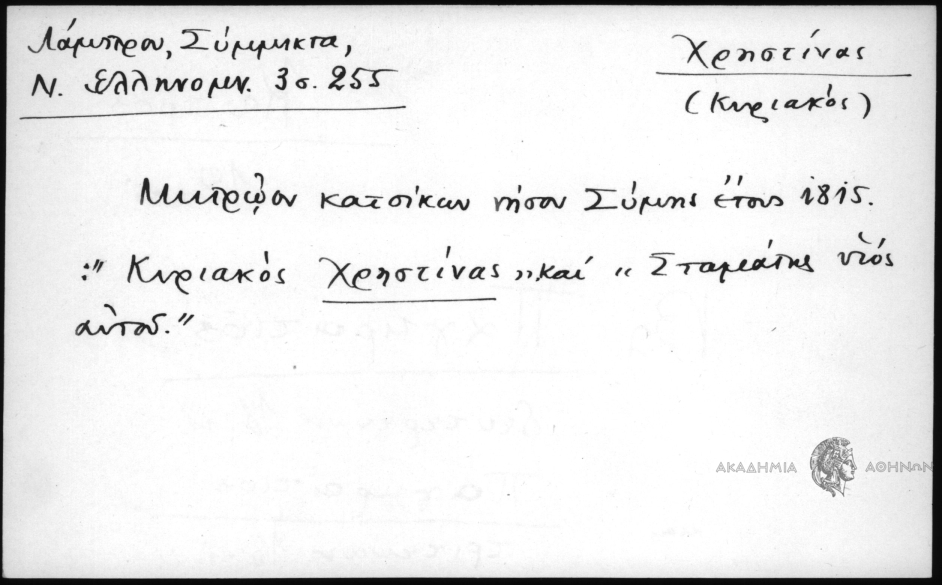 Λάμπρου, Σύμμικτα,
Ν. Ελληνομν. 3 σ. 255
Χρηστίνας
(Κυριακός)
Μητρῷον κατοίκων νήσου Σύμης ἔτους 1815.
:" Κυριακός Χρηστίνας" καί "Σταμάτης υἱός
αὐτοῦ."
ΑΚΑΔΗΜΙΑ ΑΘΗΝΩΝ